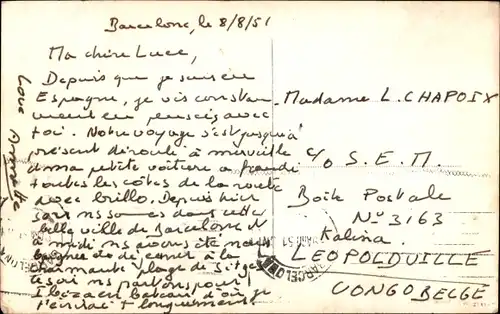 Barcelone, le 8/8/51
Ma chère Luce,
Depuis que je suis en
Espagne, je vis constam
ment en pensées avec
toi. Notre voyage s'est jusqu'à
présent déroulé à merveille
ma petite voiture a franchi
toutes les côtes de la route
avec brillo. Depuis hier
soir ns sommes dans cette
belle ville de Barcelone et
à midi ns avons été nous
baigner et déjeuner à la
charmante plage de Sitges
ce soir ns partons pour
bateau d'où je
longuement
Love
Madame L. CHAPOIX
c/o S.E.M.
Boîte Postale
N° 3163
Kalina
LEOPOLDVILLE
CONGO BELGE
BARCELONA